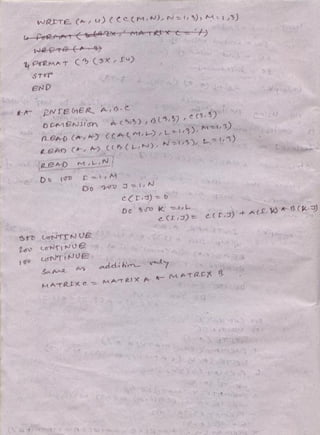 WRITE (*, 4) ((C(M,N), N=1,3), M=1,3)
4 FORMAT (3(3X, I4)
STOP
END
INTEGER A, B, C
DIMENSION A(3,3), B(3,3), C(3,3)
READ (*, *) ((A(M,L), L=1,3), M=1,3)
READ (*, *) ((B(L,N), N=1,3), L=1,3)
READ M,L,N
DO 100 I=1,M
DO 200 J=1,N
C(I,J)=0
DO 300 K=1,L
C(I,J)= C(I,J) + A(I,K)*B(K,J)
300 CONTINUE
200 CONTINUE
100 CONTINUE
Same as addition only
MATRIX C = MATRIX A * MATRIX B